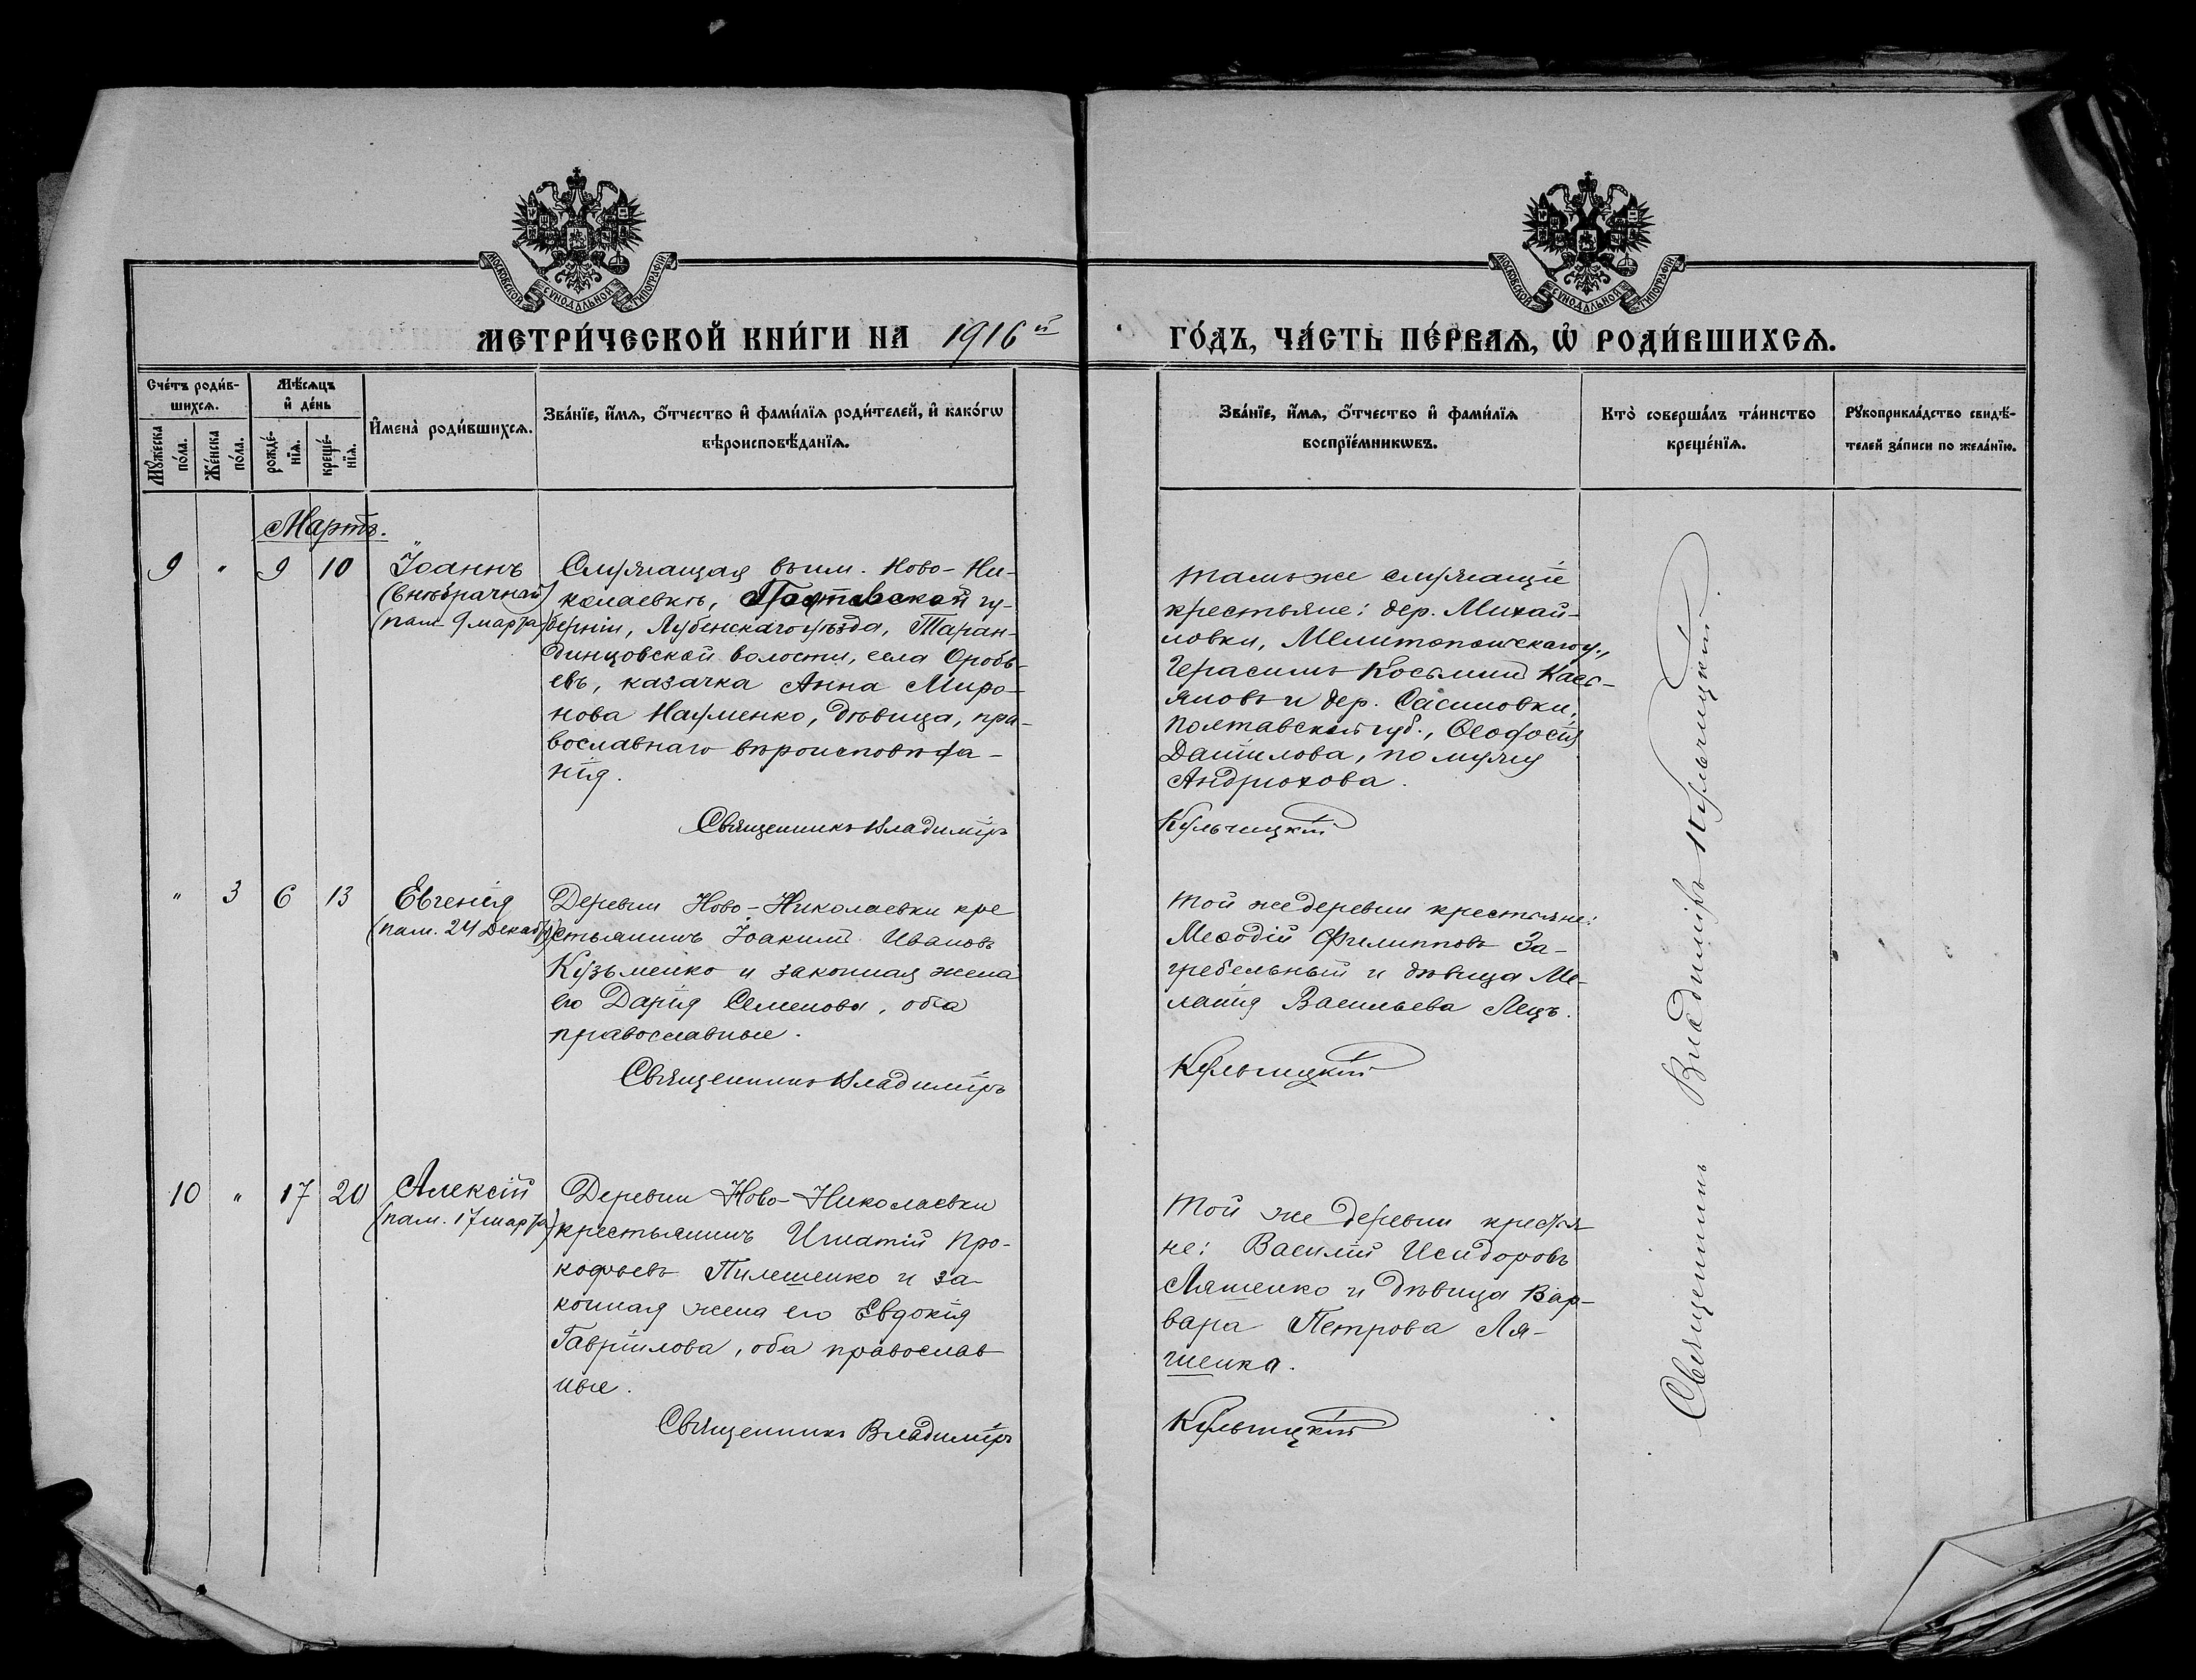 МОСКОВСКОЙ СѴНОДАЛЬНОЙ ТИПОГРАФІИ
МОСКОВСКОЙ СѴНОДАЛЬНОЙ ТИПОГРАФІИ
МЕТРИ́ЧЕСКОЙ КНИ́ГИ НА 1916й
ГО́ДЪ, ЧА́СТЬ ПЕ́РВАѦ, Ѡ҆ РОДИ́ВШИХСѦ.
Сче́тъ роди́в-
шихсѧ.
Мꙋ́жеска по́ла.
Же́нска по́ла.
Мѣ́сѧцъ
и҆ де́нь
рожде́-
нїѧ.
креще́-
нїѧ.
И҆мена̀ роди́вшихсѧ.
Зва́нїе, и҆́мѧ, ѻ҆́тчество и҆ фами́лїѧ роди́телей, и҆ како́гѡ
вѣроисповѣ́данїѧ.
Зва́нїе, и҆́мѧ, ѻ҆́тчество и҆ фами́лїѧ
воспрїе́мникѡвъ.
Кто̀ соверша́лъ та́инство
креще́нїѧ.
Рꙋкоприкла́дство свидѣ́-
телей за́писи по жела́нїю.
Мартъ.
9 " 9 10
Іоаннъ
(внѣбрачный)
(пам. 9 марта)
Служащая въ им. Ново-Ни-
колаевкѣ, Полтавской гу-
берніи, Лубенскаго уѣзда, Таран-
динцовской волости, села Оробь-
евъ, казачка Анна Миро-
нова Науменко, дѣвица, пра-
вославнаго вѣроисповѣда-
нія.
Священникъ Владиміръ
тамъ же служащіе
крестьяне: дер. Михай-
ловки, Мелитопольскаго у.,
Герасимъ Косьминъ Касс-
яновъ и дер.
Полтавской губ., Ѳеодосія
Даніилова, по мужу
Андрюхова.
Кульчицкій
" 3 6 13
Евгенія
(пам. 24 Декабр)
Деревни Ново-Николаевки кре
стьянинъ Іоакимъ Ивановъ
Кузьменко и законная жена
его Дарія Семенова, оба
православные.
Священникъ Владиміръ
той же деревни крестьяне:
Меѳодій Филипповъ За-
гребельный и дѣвица Ме-
ланія Васильева Лецъ.
Кульчицкій
10 " 17 20
Алексій
(пам. 17 марта)
Деревни Ново-Николаевки
крестьянинъ Игнатій Про-
кофьевъ Пилешенко и за-
конная жена его Евдокія
Гавріилова, оба православ
ные.
Священникъ Владиміръ
той же деревни крестья
не: Василій Исидоровъ
Ляшенко и дѣвица Вар-
вара Петрова Ля-
шенко.
Кульчицкій
Священникъ Владиміръ Кульчицкій